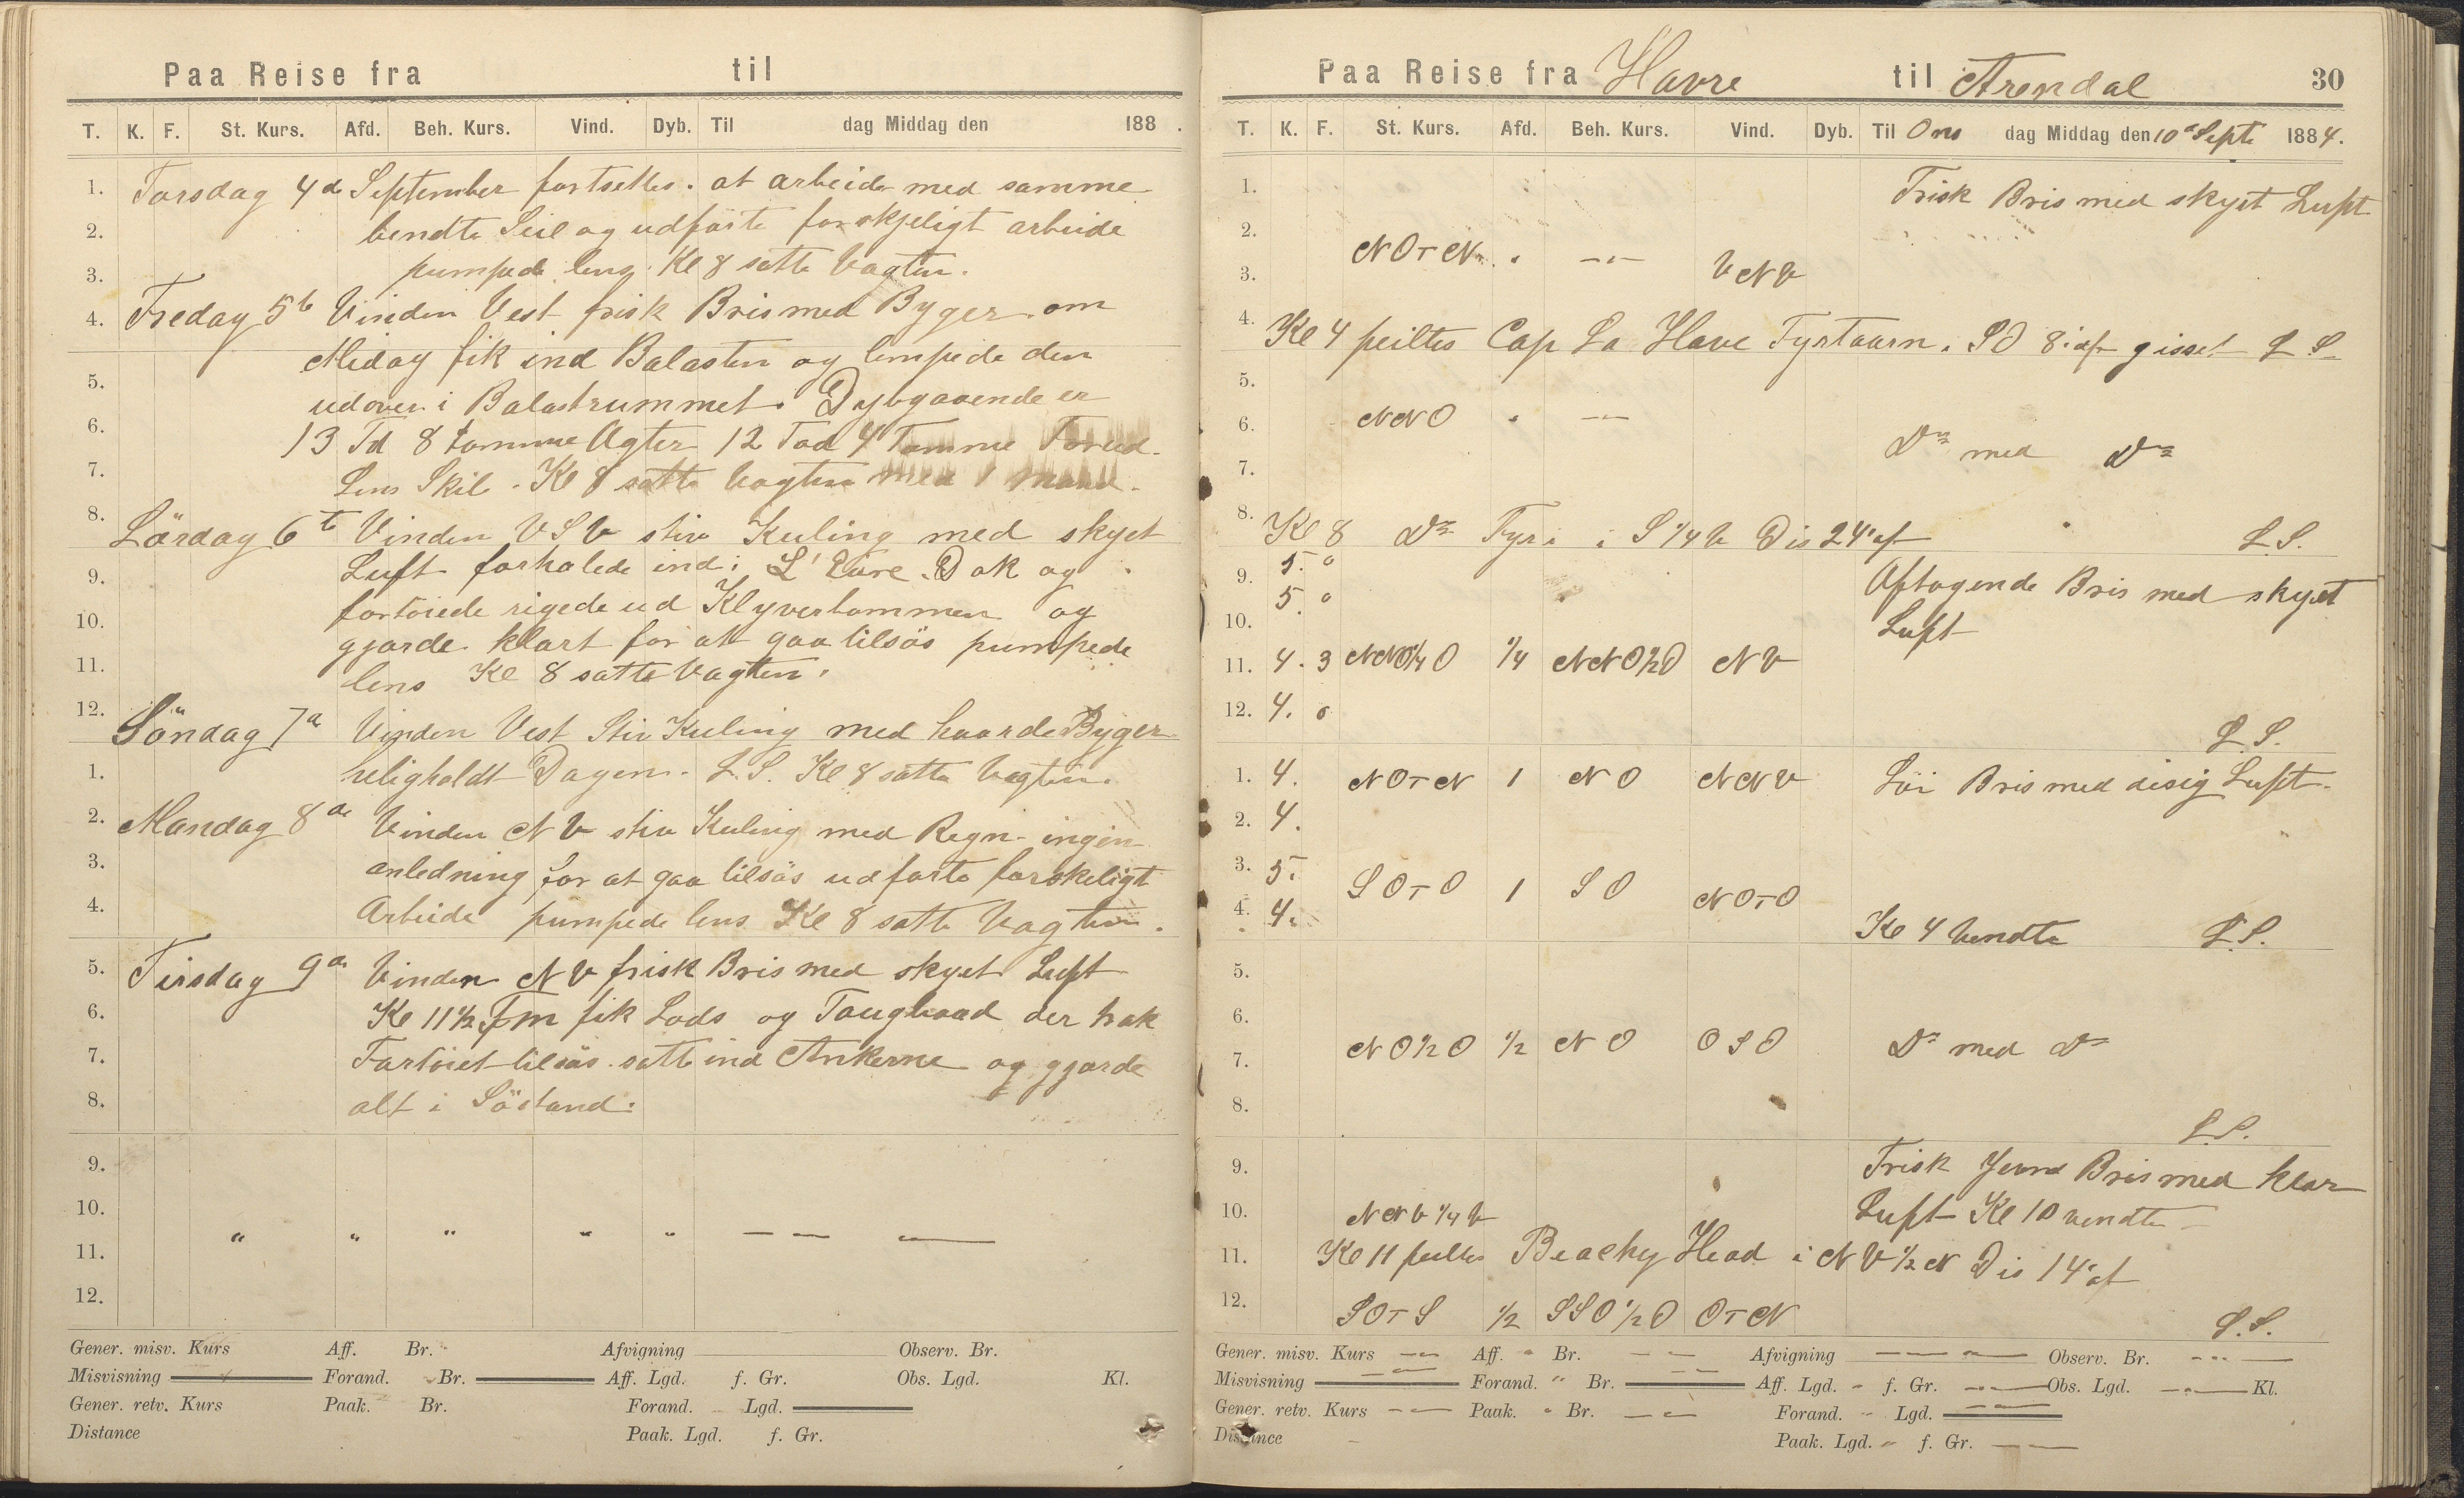 Paa Reise fra til
T. K. F. St. Kurs. Afd. Beh. Kurs. Vind. Dyb. Til dag Middag den 188 .
1. Torsdag 4de September fortsettes. at arbeide med samme
2. bendte Seil og udförte forskjeligt arbeide
3. pumpede lens. Kl 8 satte Vagten.
4. Fredag 5te Vinden Vest frisk Bris med Byger. om
Midag fik ind Balasten og lempede den
5. udover i Balastrummet. Dybgaaende er
6. 13 Fd 8 tomme Agter 12 Fod 4 Tomme Forud.
7. Lens Skib. Kl 8 satte Vagten med 1 Mand.
8. Lördag 6te Vinden VSV stiv Kuling med skyet
9. Luft forhalede ind i L'Eure. Dok og
10. fortöiede rigede ud Klyverbommen og
gjorde klart for at gaa tilsös pumpede
11. lens Kl 8 satte Vagten.
12. Söndag 7de Vinden Vest Stiv Kuling med haarde Byger
1. heligholdt Dagen. L.S. Kl 8 satte Vagten.
2. Mandag 8de Vinden NV stiv Kuling med Regn. ingen
3. anledning for at gaa tilsös udförte forskeligt
4. Arbeide pumpede lens Kl 8 satte Vagten.
5. Tirsdag 9de Vinden NV frisk Bris med skyet Luft
6. Kl 11½ Fm fik Lods og Taugbaad der
7. Fartöiet tilsös. satte ind Ankerne og gjorde
8. alt i Söstand.
9.
10.
11. " " " " " — — —
12.
Gener. misv. Kurs Aff. Br. Afvigning Observ. Br.
Misvisning Forand. Br. Aff. Lgd. f. Gr. Obs. Lgd. Kl.
Gener. retv. Kurs Paak. Br. Forand. Lgd.
Distance Paak. Lgd. f. Gr.
Paa Reise fra Havre til Arendal 30
T. K. F. St. Kurs. Afd. Beh. Kurs. Vind. Dyb. Til Ons dag Middag den 10de Septr 1884.
1. Frisk Bris med skyet Luft
2.
3. NOTN " — VNV
4. Kl 4 peiltes Cap La Have Fyrtaarn. SO 8' af gisset L S.
5.
6. NNO " —
7. Do med Do
8. Kl 8 Do Fyr i S ¼ V Dis 24' af L.S.
9. 5. 0 Aftagende Bris med skyet
10. 5. 0 Luft
11. 4. 3 NNO¼O ¼ NNO½O NV
12. 4. 0 L.S.
1. 4. NOTN 1 NO NNV Löi Bris med disig Luft.
2. 4.
3. 5. SOTO 1 SO NOTO
4. 4. Kl 4 vendte L.S.
5.
6.
7. NO½O ½ NO OSO Do med Do
8. L.S.
9. Frisk Jevnd Bris med klar
10. NNV¼V Luft Kl 10 vendte
11. Kl 11 peiltes Beachy Head i NV½N Dis 14' af
12. SOTS ½ SSO½O OTN L.S.
Gener. misv. Kurs — Aff. " Br. — Afvigning — Observ. Br. —
Misvisning — Forand. " Br. — Aff. Lgd. " f. Gr. — Obs. Lgd. — Kl.
Gener. retv. Kurs — Paak. " Br. — Forand. " Lgd. —
Distance — Paak. Lgd. " f. Gr. —